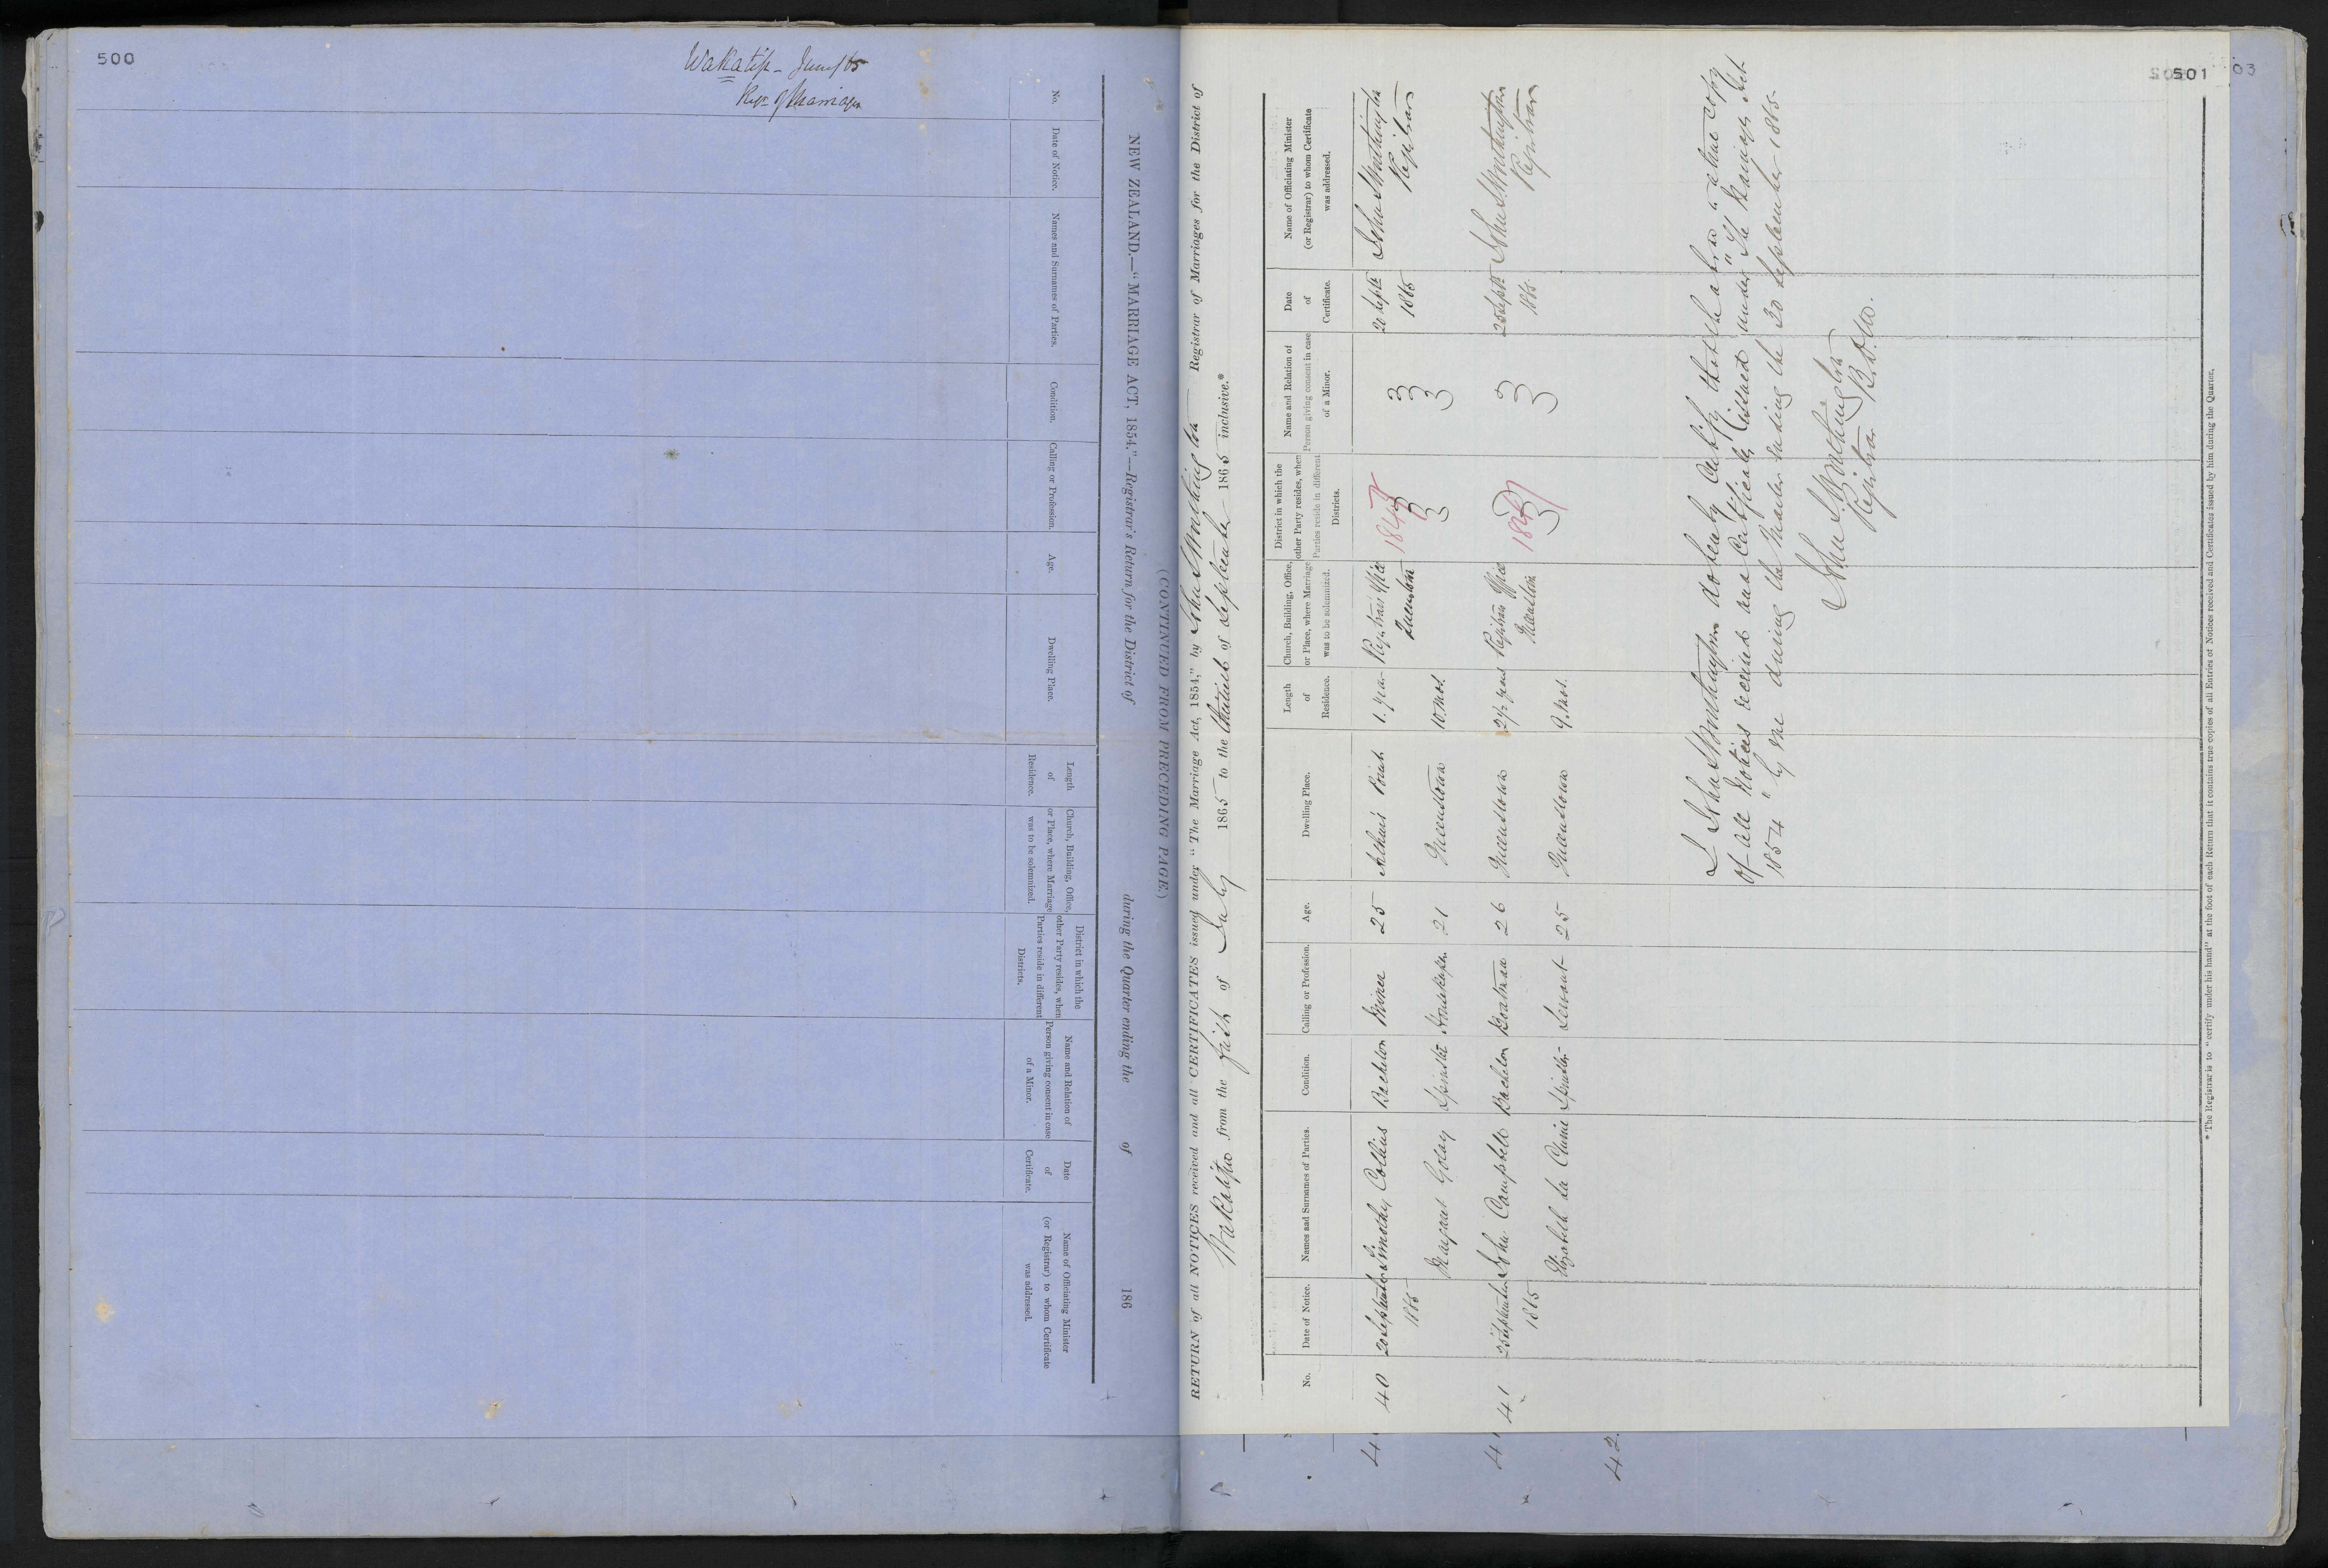 500
Wakatip - June/65
Retn of Marriages
NEW ZEALAND.—"MARRIAGE ACT, 1854."—Registrar's Return for the District of during the Quarter ending the of 186
(CONTINUED FROM PRECEDING PAGE.)
No.
Date of Notice.
Names and Surnames of Parties.
Condition.
Calling or Profession.
Age.
Dwelling Place.
Length of Residence.
Church, Building, Office, or Place, where Marriage was to be solemnized.
District in which the other Party resides, when Parties reside in different Districts.
Name and Relation of Person giving consent in case of a Minor.
Date of Certificate.
Name of Officiating Minister (or Registrar) to whom Certificate was addressed.
501
03
RETURN of all NOTICES received and all CERTIFICATES issued under "The Marriage Act, 1854," by John S Worthington Registrar of Marriages for the District of
Wakatipu from the first of July 1865 to the thirtieth of September 1865 inclusive.*
No.
Date of Notice.
Names and Surnames of Parties.
Condition.
Calling or Profession.
Age.
Dwelling Place.
Length of Residence.
Church, Building, Office, or Place, where Marriage was to be solemnized.
District in which the other Party resides, when Parties reside in different Districts.
Name and Relation of Person giving consent in case of a Minor.
Date of Certificate.
Name of Officiating Minister (or Registrar) to whom Certificate was addressed.
40 20 September Timothy Collins Bachelor Miner 25 Arthur's Point 1. year Registrars Office 20 Septr John S Worthington
1865 Queenstown 1865 Registrar
Margaret Spinster Housekeeper 21 Queenstown 10. mos.
41 25 September John Campbell Bachelor Boatman 26 Queenstown 2½ years Registrars Office 25 Septr John S. Worthington
1865 Queenstown 1865 Registrar
Elizabeth Spinster Servant 25 Queenstown 9. mos.
I John S Worthington do hereby certify that the above is a true copy
of all Notices received and Certificates issued under "The Marriage Act
1854" by me during the Quarter ending the 30 September 1865.
John S. Worthington
Registrar
* The Registrar is to "certify under his hand" at the foot of each Return that it contains true copies of all Entries of Notices received and Certificates issued by him during the Quarter.
41
42.